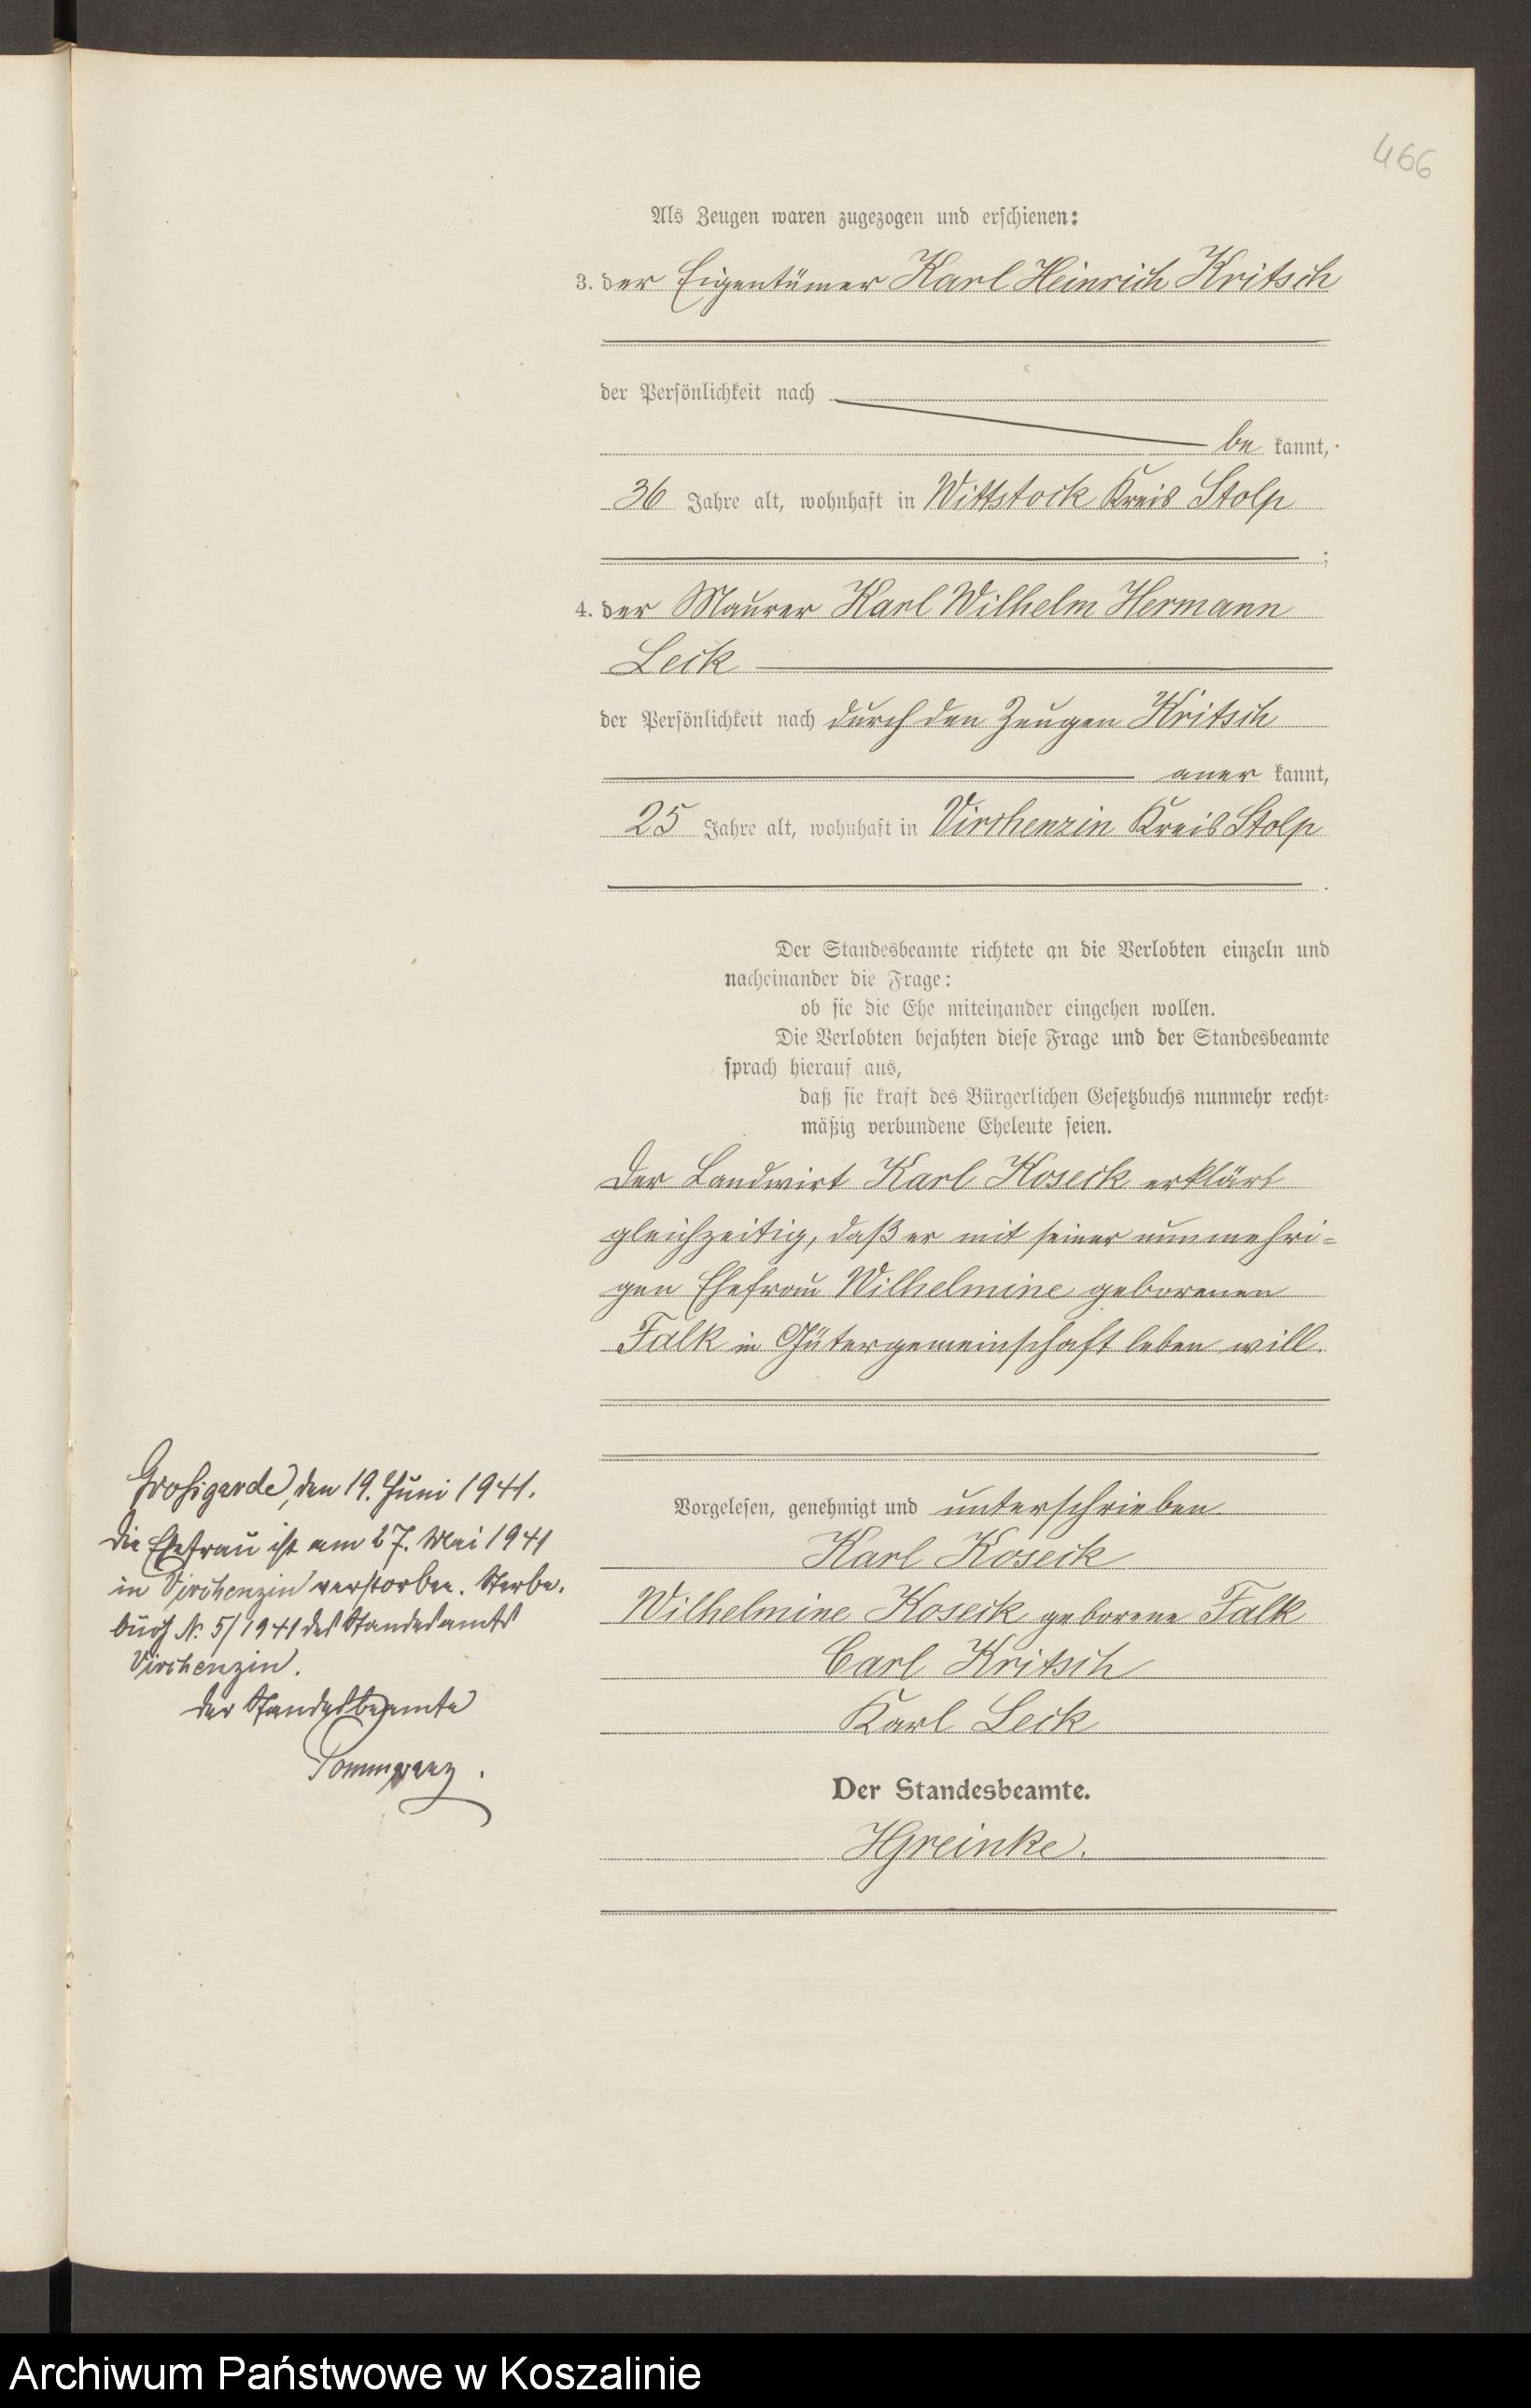 466
Als Zeugen waren zugezogen und erschienen:
3. der Eigentümer Karl Heinrich Kritsch
der Persönlichkeit nach
be kannt,
36 Jahre alt, wohnhaft in Wittstock Kreis Stolp
;
4. der Maurer Karl Wilhelm Hermann
Leck
der Persönlichkeit nach durch den Zeugen Kritsch
aner kannt,
25 Jahre alt, wohnhaft in Virchenzin Kreis Stolp
.
Der Standesbeamte richtete an die Verlobten einzeln und
nacheinander die Frage:
ob sie die Ehe miteinander eingehen wollen.
Die Verlobten bejahten diese Frage und der Standesbeamte
sprach hierauf aus,
daß sie kraft des Bürgerlichen Gesetzbuchs nunmehr recht-
mäßig verbundene Eheleute seien.
Der Landwirt Karl Koseck erklärt
gleichzeitig, daß er mit seiner nunmehri-
gen Ehefrau Wilhelmine geborenen
Falk in Gütergemeinschaft leben will.
Vorgelesen, genehmigt und unterschrieben.
Karl Koseck
Wilhelmine Koseck geborene Falk
Carl Kritsch
Karl Leck
Der Standesbeamte.
HGreinke.
Großgarde, den 19. Juni 1941.
Die Ehefrau ist am 27. Mai 1941
in Virchenzin verstorben. Sterbe-
buch N. 5/1941 des Standesamts
Virchenzin.
Der Standesbeamte
Archiwum Państwowe w Koszalinie